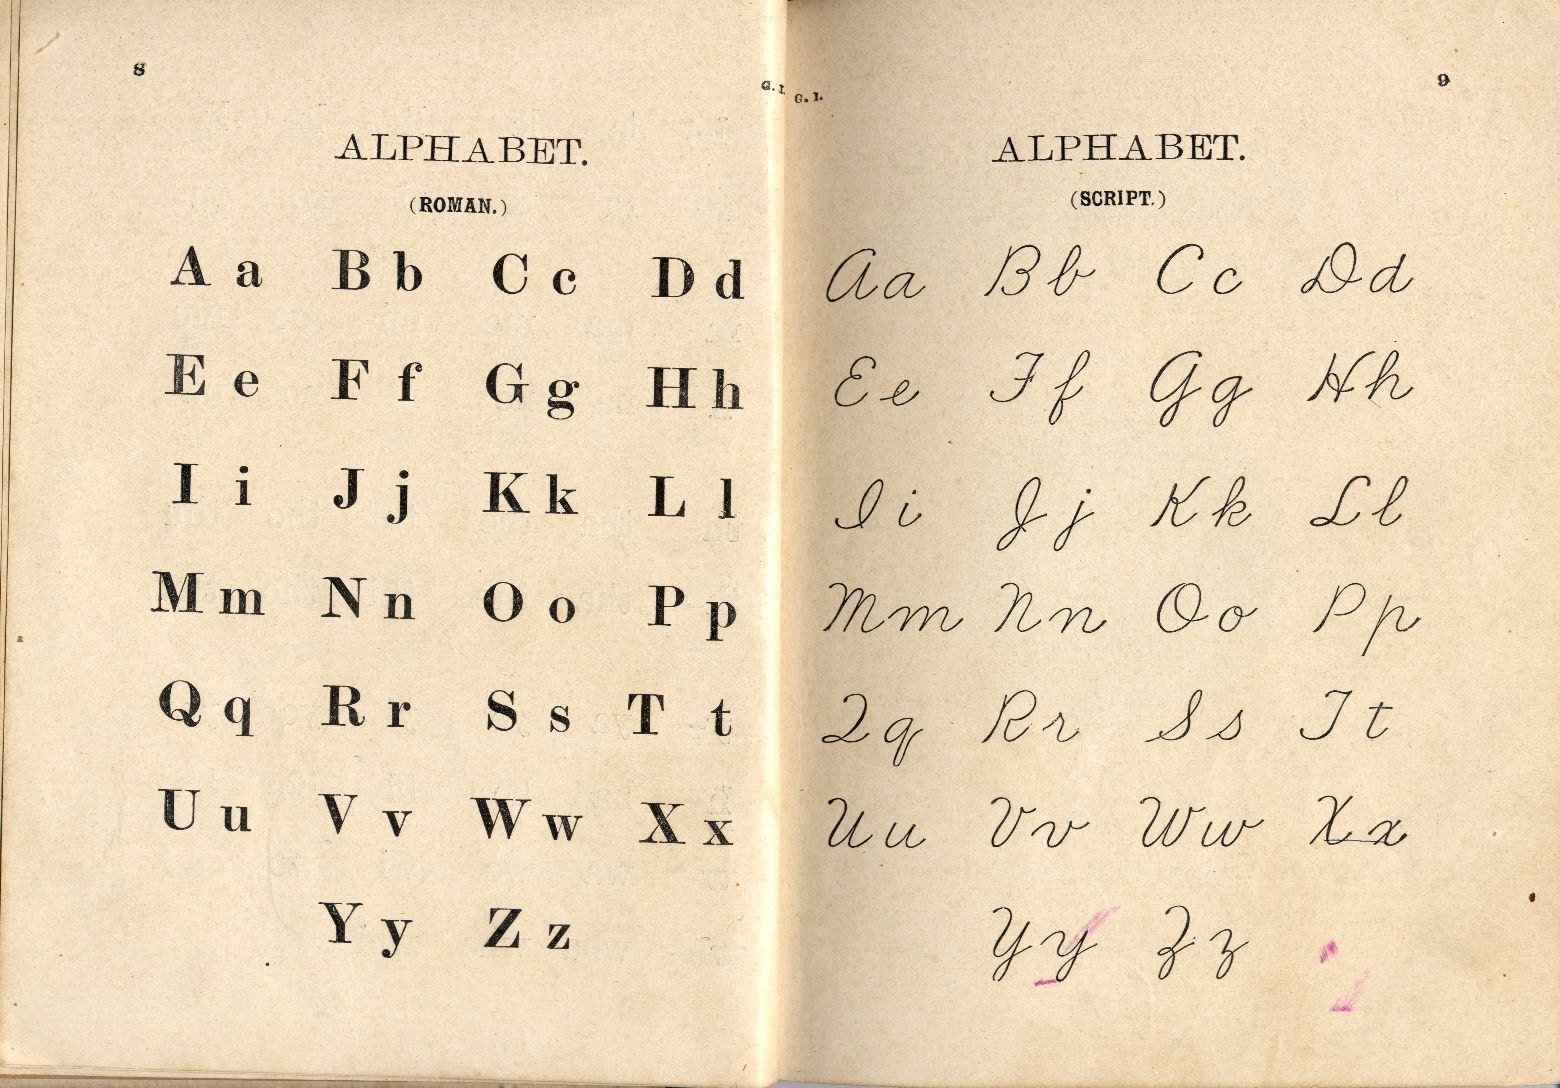 8
G. I.
ALPHABET.
(ROMAN.)
A a B b C c D d
E e F f G g H h
I i J j K k L l
M m N n O o P p
Q q R r S s T t
U u V v W w X x
Y y Z z
9
G. I.
ALPHABET.
(SCRIPT.)
A a B b C c D d
E e F f G g H h
I i J j K k L l
M m N n O o P p
Q q R r S s T t
U u V v W w X x
Y y Z z